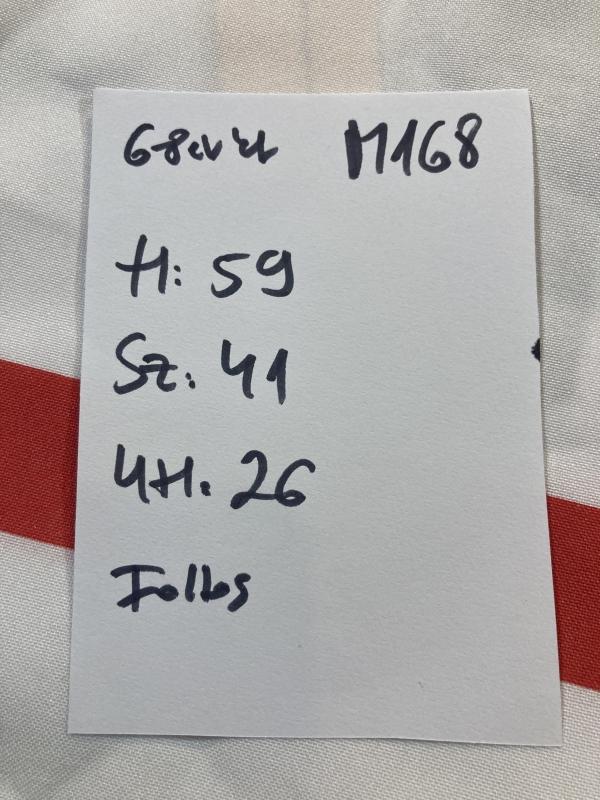 6-8 év M168
H: 59
Sz: 41
UH: 26
Foltos